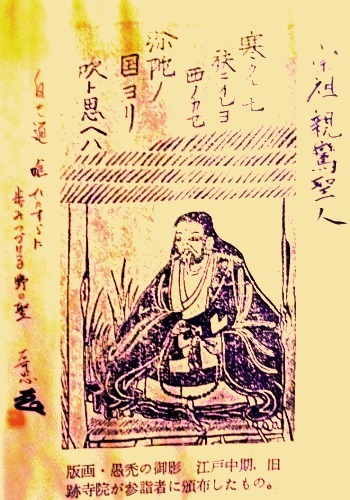 宗祖親鸞聖人
寒クトモ
袂ニイレヨ
西ノカセ
弥陀ノ
国ヨリ
吹ト思ヘハ
唯ひたすらに
歩みつづける 野の聖
版画・愚禿の御影　江戸中期、旧
跡寺院が参詣者に頒布したもの。